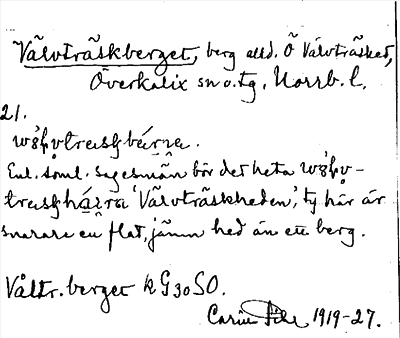 Välvträskberget, berg alld. Ö Välvträsket,
Överkalix sn o. tg, Norrb. l.
21.
Enl. soml. sagesmän bör det heta
'Välvträskheden', ty här är
snarare en flat, jämn hed än ett berg.
Vältr. berget k G30SO.
Carin 1919-27.